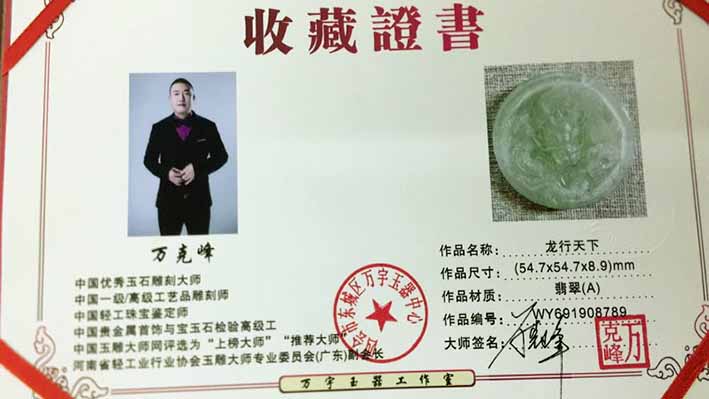 收藏證書
万克峰
中国优秀玉石雕刻大师
中国一级/高级工艺品雕刻师
中国轻工珠宝鉴定师
中国贵金属首饰与宝玉石检验高级工
中国玉雕大师网评选为“上榜大师” “推荐大师”
河南省轻工业行业协会玉雕大师专业委员会(广东)副会长
市东城区万宇玉器中心
作品名称: 龙行天下
作品尺寸: (54.7x54.7x8.9)mm
作品材质: 翡翠(A)
作品编号: WY691908789
大师签名:
万克峰
万宇玉器工作室